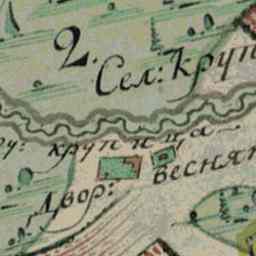 2.
Сел: Круп
ру: крупица
Двор: весня